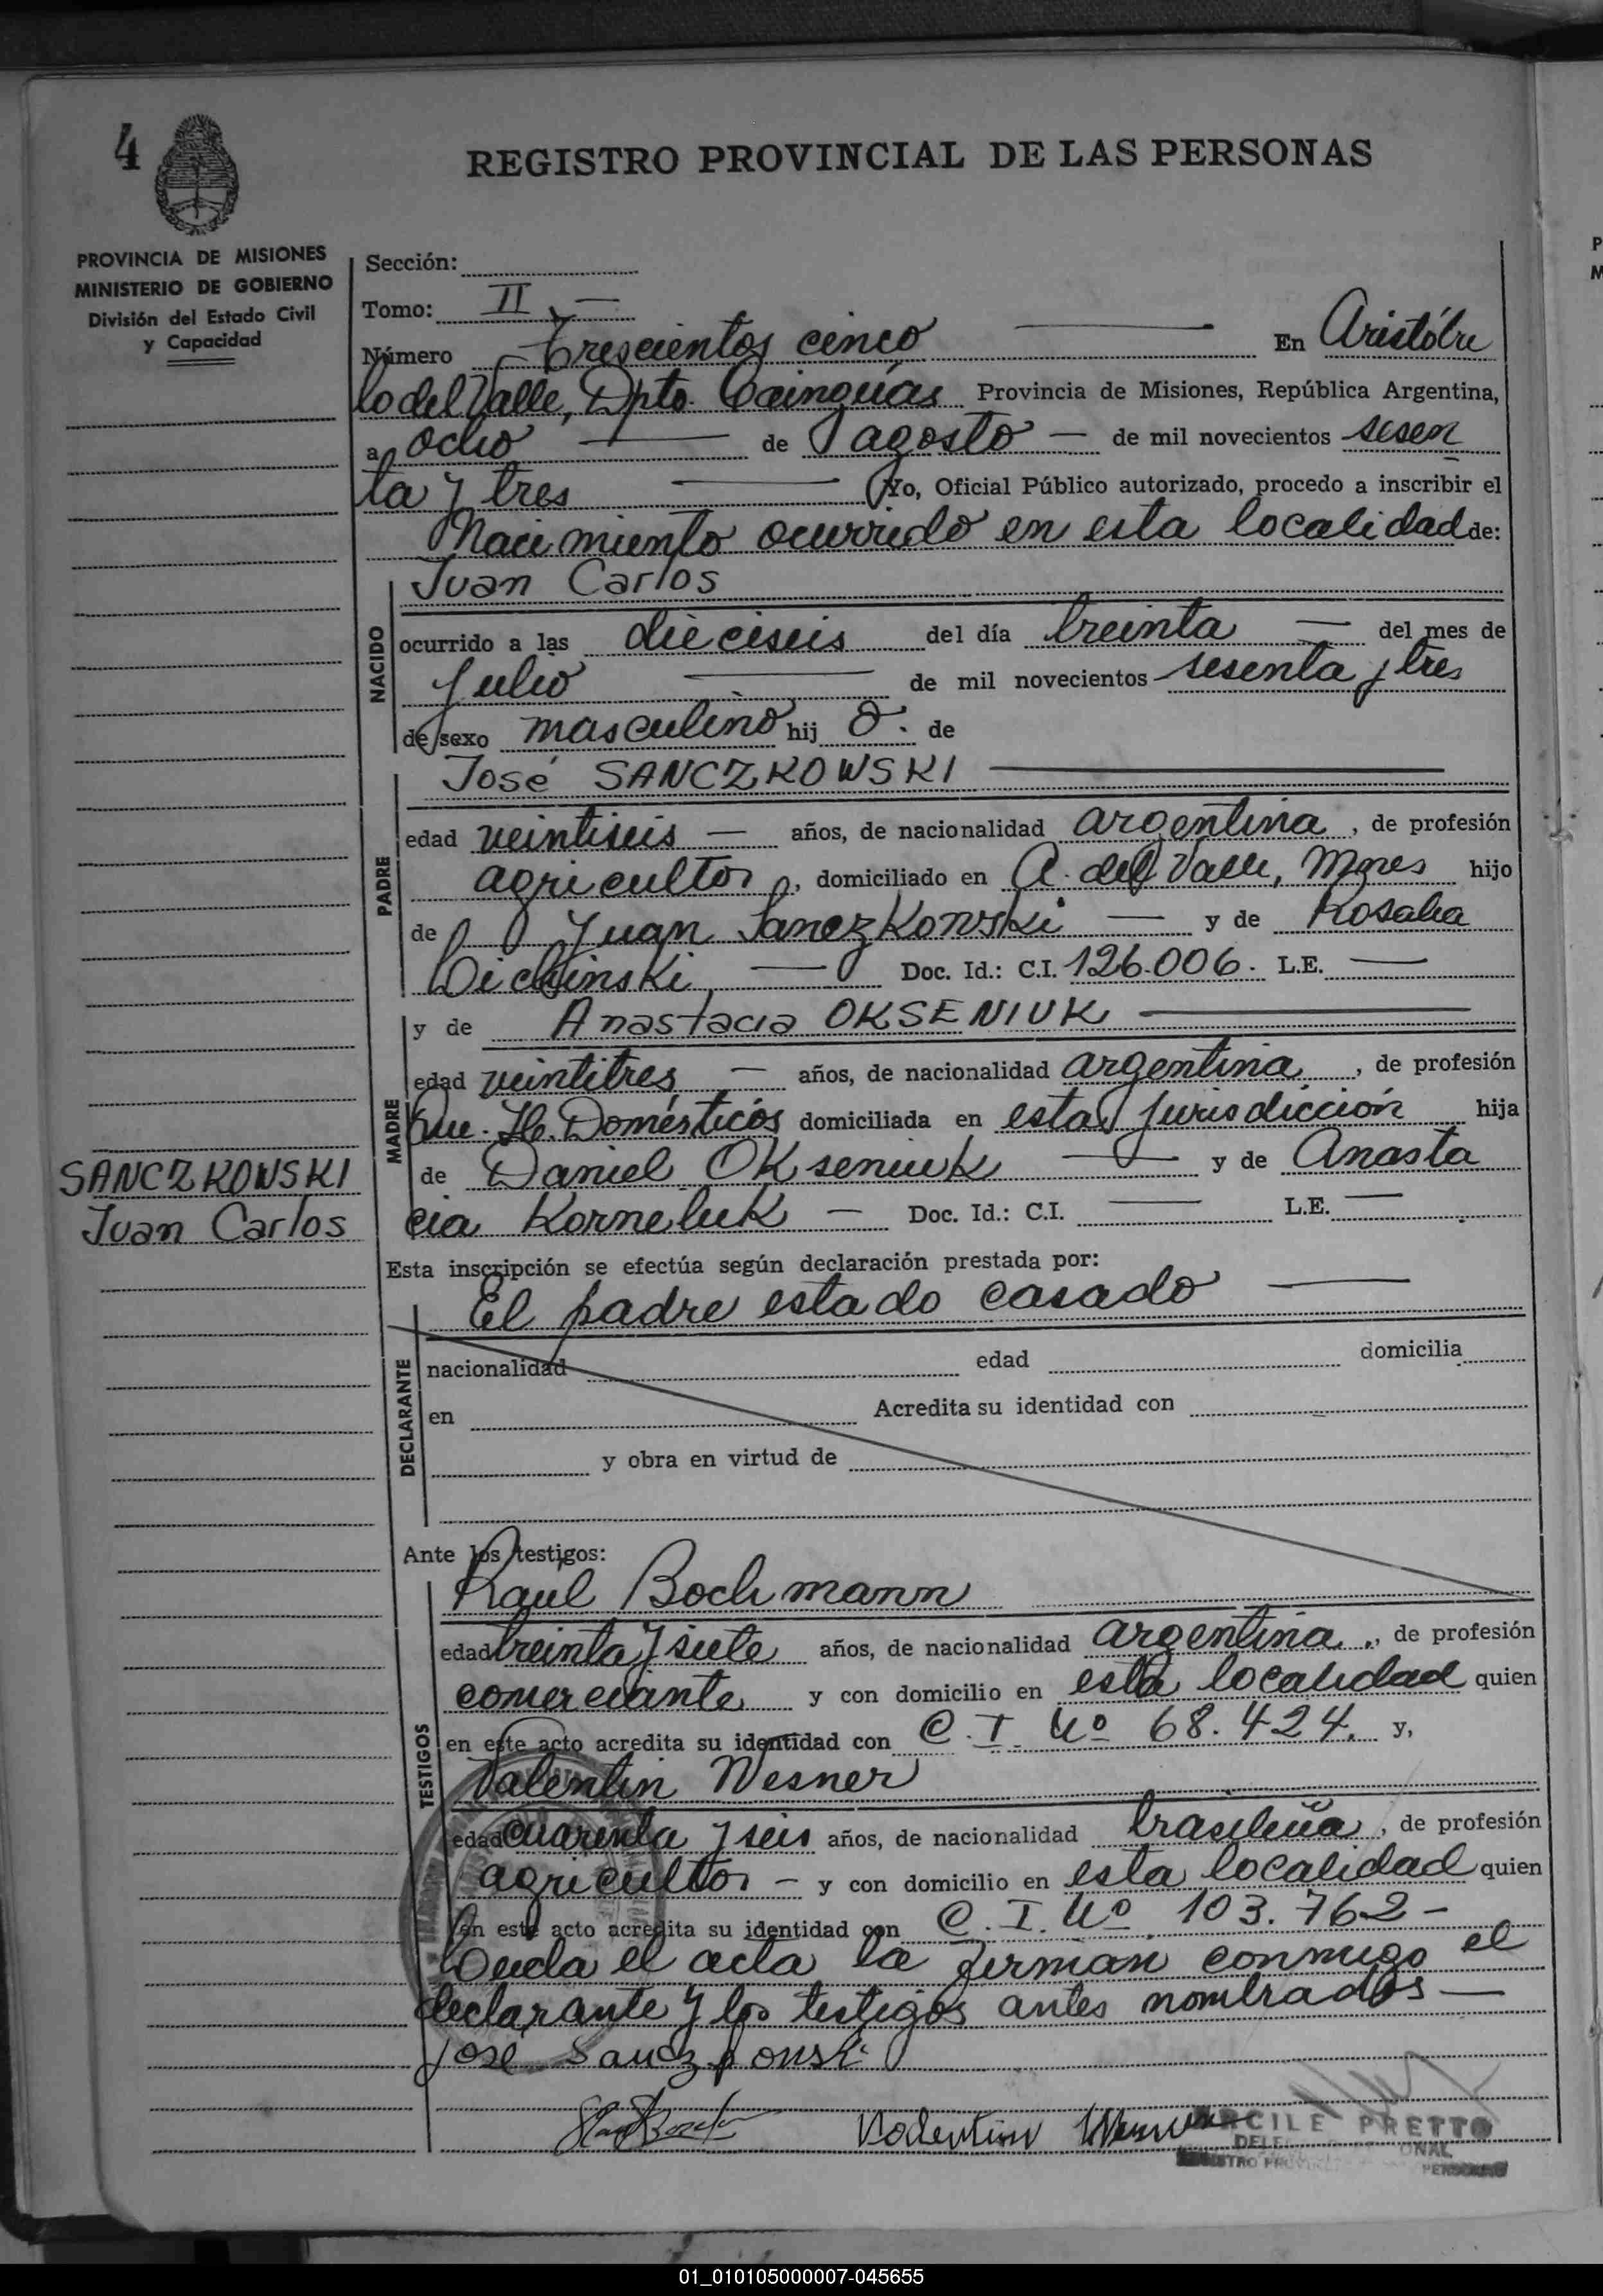 4
REGISTRO PROVINCIAL DE LAS PERSONAS
PROVINCIA DE MISIONES
MINISTERIO DE GOBIERNO
División del Estado Civil
y Capacidad
Sección:
Tomo: II —
Número Trescientos cinco — En Aristóbu
lo del Valle, Dpto. Cainguás Provincia de Misiones, República Argentina,
a ocho — de agosto — de mil novecientos sesen
ta y tres — Yo, Oficial Público autorizado, procedo a inscribir el
Nacimiento ocurrido en esta localidad de:
NACIDO
Juan Carlos
ocurrido a las dieciseis del día treinta — del mes de
Julio — de mil novecientos sesenta y tres
de sexo masculino hij o. de
PADRE
José SANCZKOWSKI —
edad veintiseis — años, de nacionalidad argentina, de profesión
agricultor, domiciliado en A. del Valle, Mnes hijo
de Juan Sanczkowski — y de Rosalia
— Doc. Id.: C.I. 126.006. L.E. —
MADRE
y de Anastacia OKSENIUK —
edad veintitres — años, de nacionalidad argentina, de profesión
Domésticos domiciliada en esta Jurisdicción hija
de Daniel Okseniuk — y de Anasta
cia Korneluk — Doc. Id.: C.I. — L.E. —
SANCZKOWSKI
Juan Carlos
Esta inscripción se efectúa según declaración prestada por:
DECLARANTE
El padre estado casado —
nacionalidad edad domicilia
en Acredita su identidad con
y obra en virtud de
Ante los testigos:
TESTIGOS
Raúl Bochmann
edad treinta y siete años, de nacionalidad argentina., de profesión
comerciante y con domicilio en esta localidad quien
en este acto acredita su identidad con C.I. Nº 68.424. y,
Valentin Wesner
edad cuarenta y seis años, de nacionalidad brasileña, de profesión
agricultor — y con domicilio en esta localidad quien
en este acto acredita su identidad con C.I. Nº 103.762 -
Leida el acta la firman conmigo el
declarante y los testigos antes nombrados —
José Sanczkowski
Valentin Wesner
ARCILE PRETTO
01_010105000007-045655